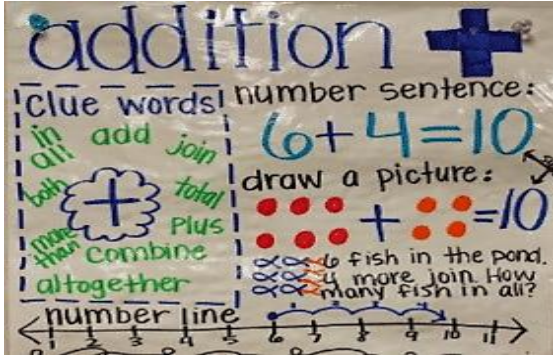 addition +
clue words
in all
add
join
both
+
total
more than
Plus
combine
altogether
number sentence:
6+4=10
draw a picture:
+ =10
6 fish in the pond.
4 more join. How
many fish in all?
number line
1 2 3 4 5 6 7 8 9 10 11